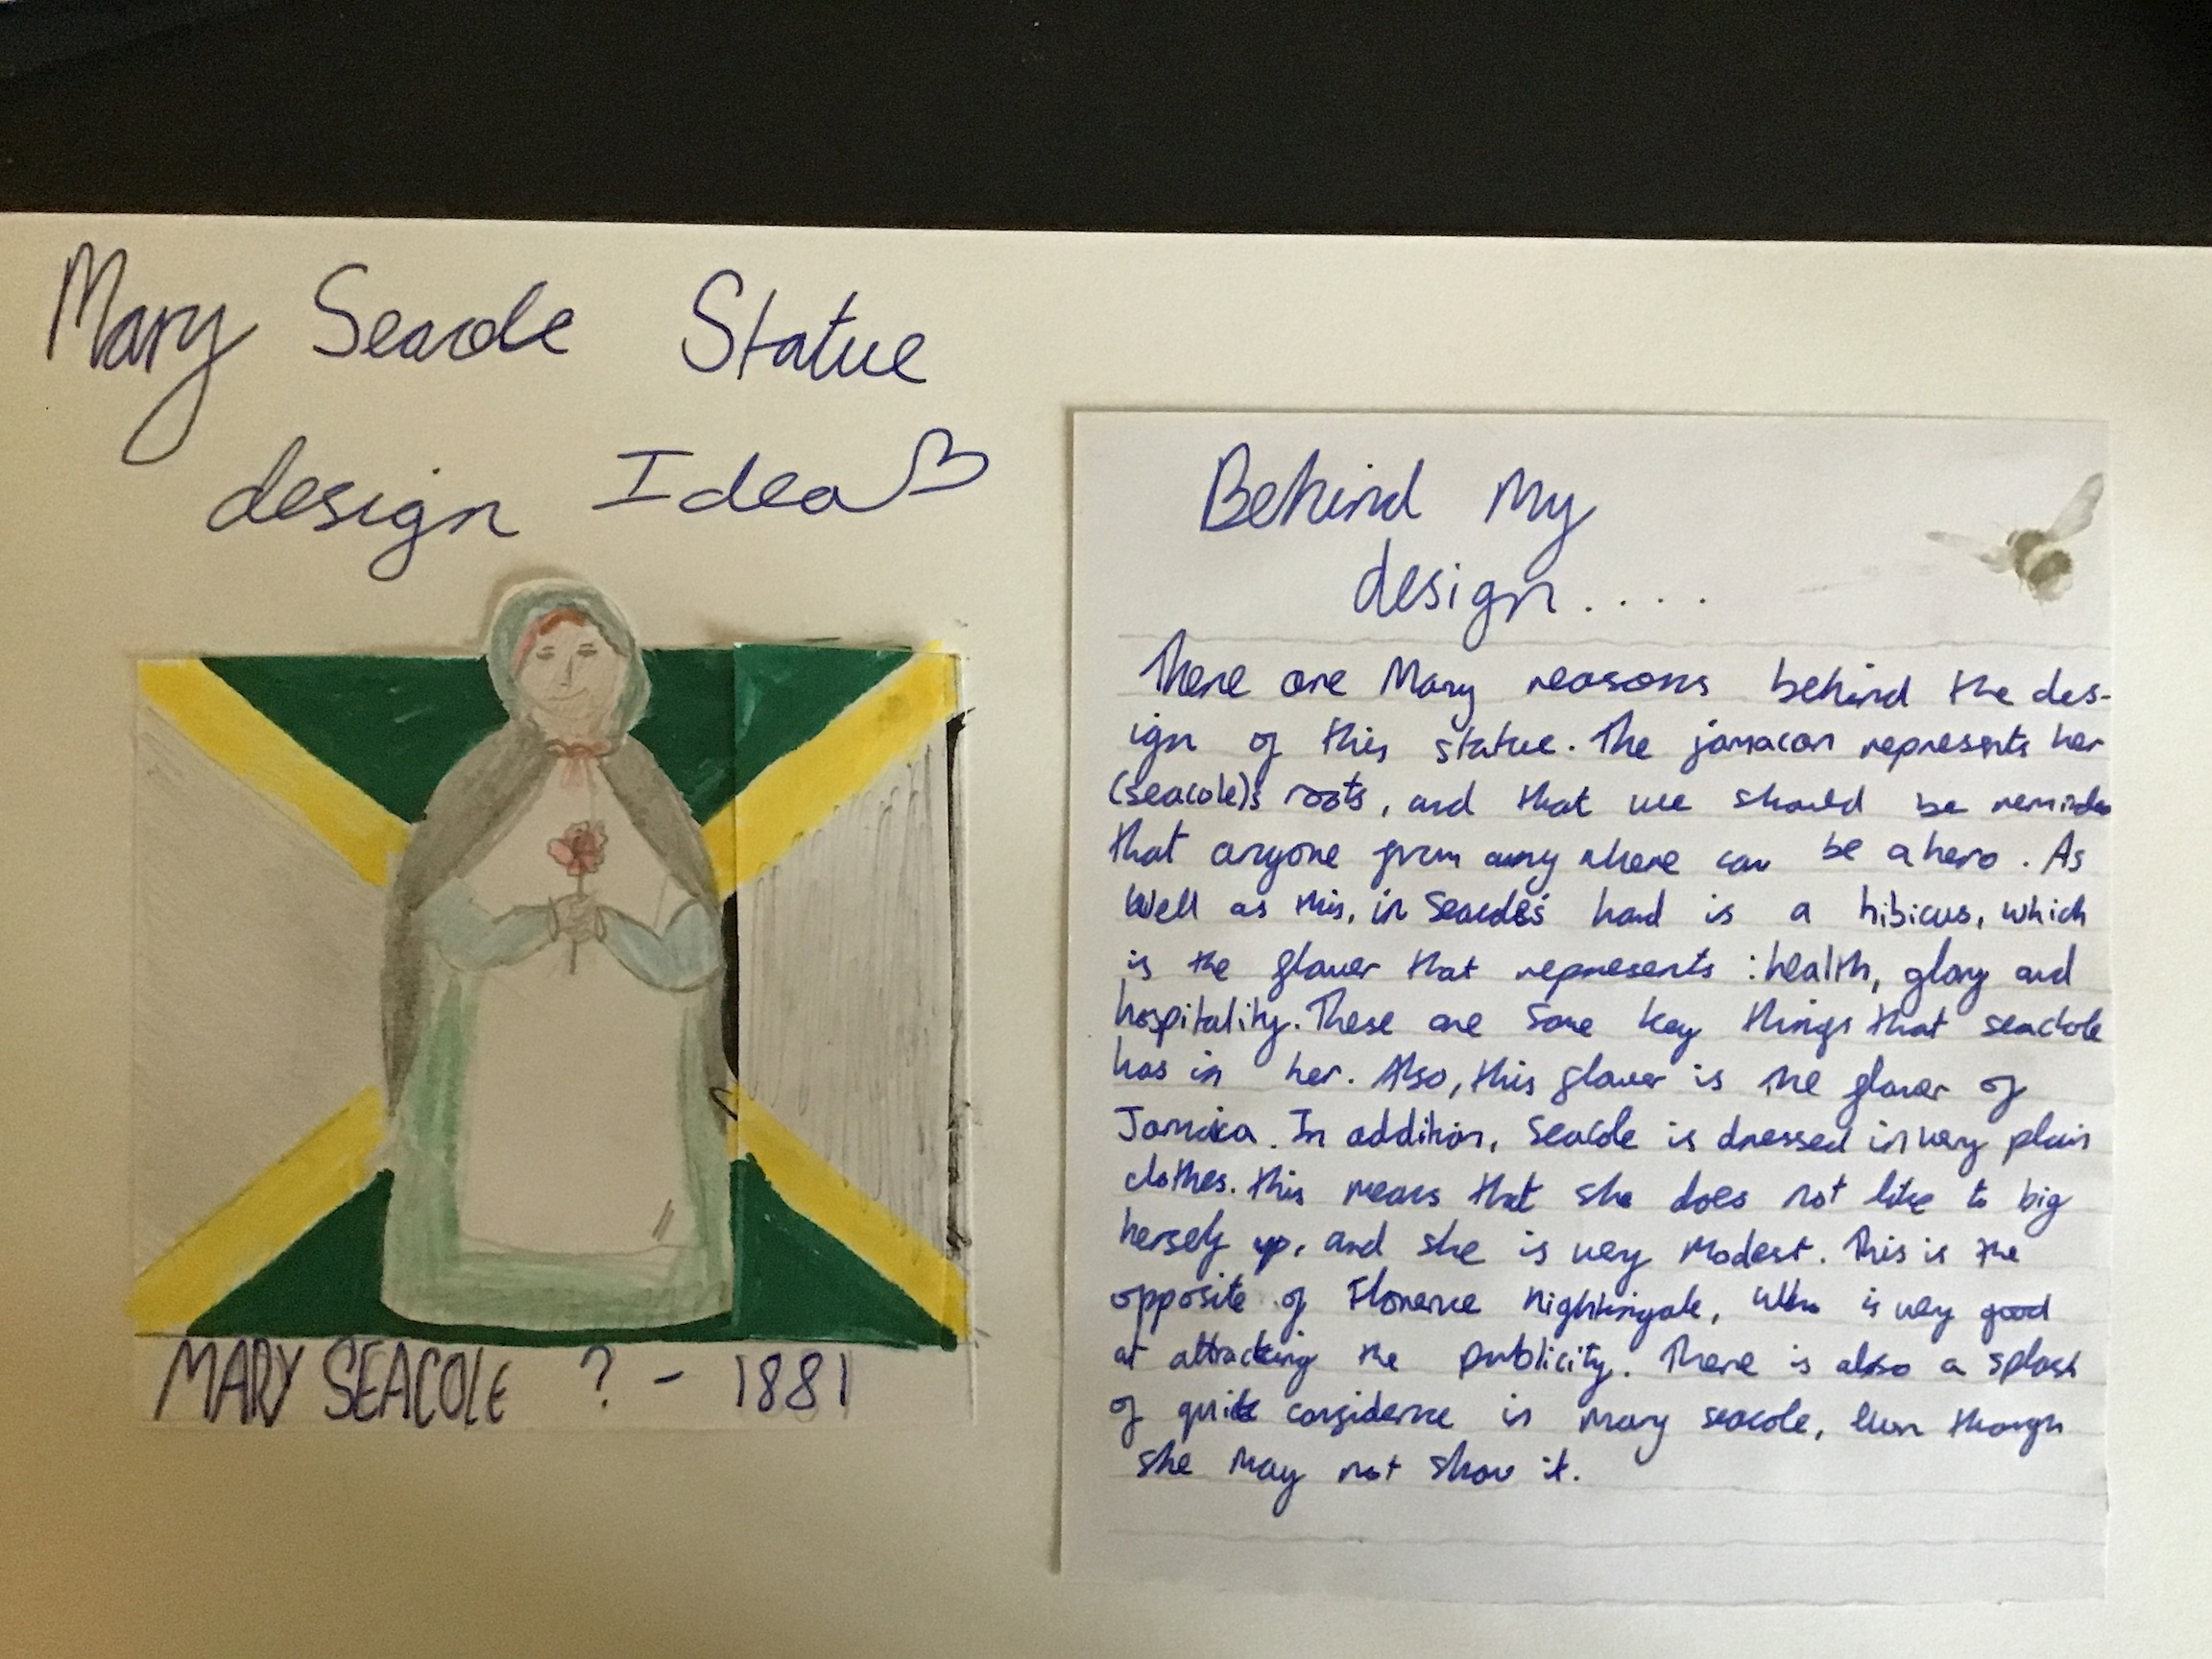 Mary Seacole Statue
design Idea
MARY SEACOLE ? - 1881
Behind My
design....
There are Many reasons behind the des-
ign of this statue. The jamacan represents her
(seacole)s roots, and that we should be reminded
that anyone from any where can be a hero. As
Well as this, in Seacole's hand is a hibicus, which
is the flower that represents : health, glory and
hospitality. These are Some key things that seacole
has in her. Also, this flower is the flower of
Jamaica. In addition, Seacole is dressed in very plain
clothes. this means that she does not like to big
herself up, and she is very Modest. This is the
opposite of Florence Nightingale, Who is very good
at attracking the publicity. There is also a splash
of quite considerence in Mary seacole, even though
she May not show it.